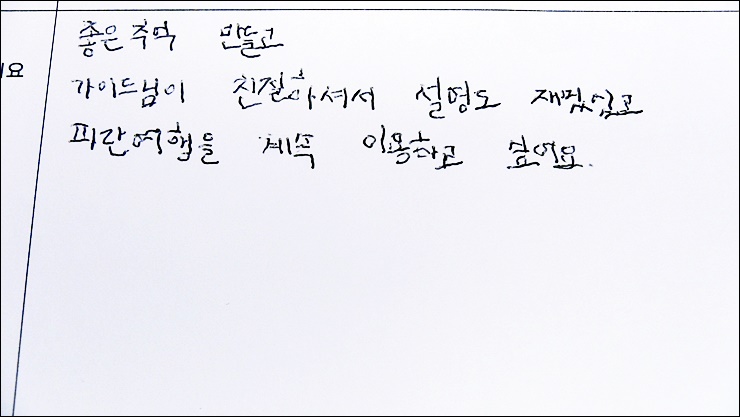 좋은 추억 만들고
가이드님이 친절하셔서 설명도 재밌었고
파란여행을 계속 이용하고 싶어요.
요